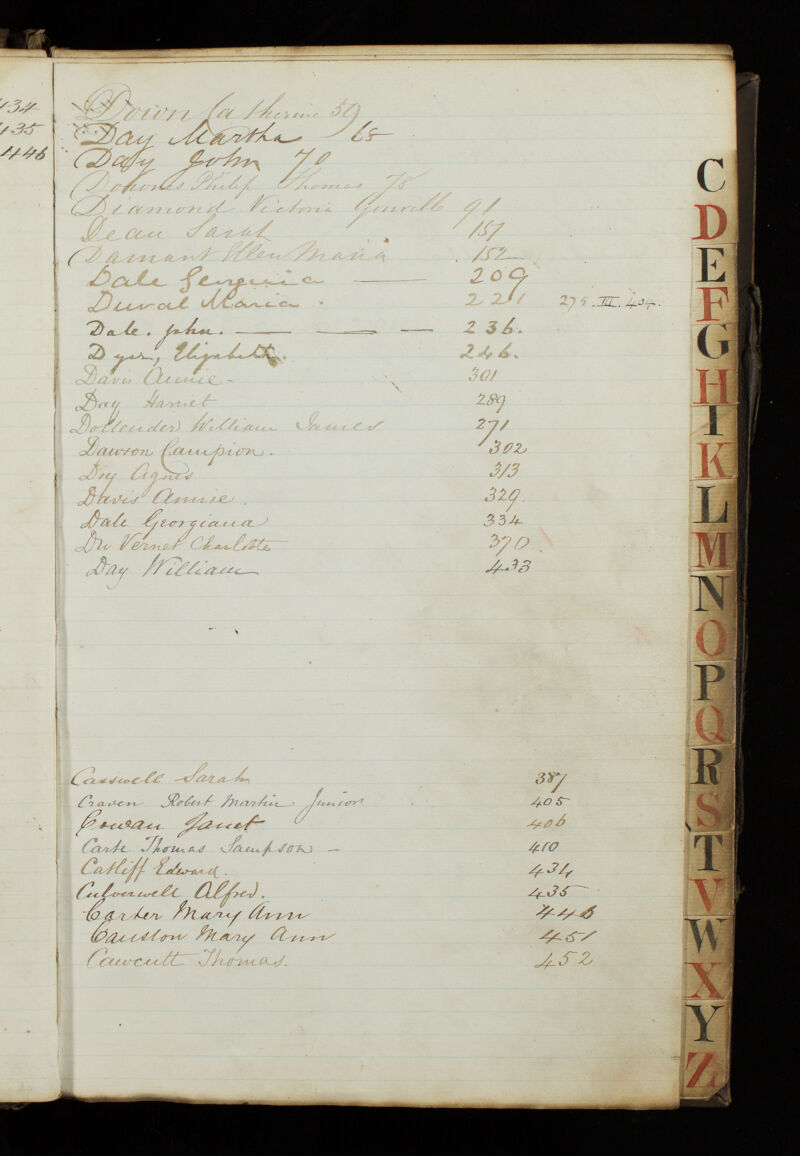 434
435
446
Down Catherine 59
Day Martha 65
Day John 70
Downes Philip Thomas 78
Diamond Victoria Gonville 91
Dean Sarah 151
Damant Ellen Maria 152
Dale Georgina 209
Duval Maria 221 275. III. 404.
Dale. John. 236.
Dyer, Elizabeth. 246.
Davis Annie 301
Day Harriet 289
Dollender William James 271
Dawson Campion. 302
Day Agnes 313
Davis Annie. 329.
Dale Georgiana 334
Du Vernet Charlotte 370
Day William 433
Casswell Sarah 387
Craven Robert Martin Junior 405
Cowan Janet 406
Carte Thomas Sampson - 410
Catliff Edward. 434
Culverwell Alfred. 435
Carter Mary Ann 446
Causton Mary Ann 451
Cawcutt Thomas. 452
C
D
E
F
G
H
I
K
L
M
N
O
P
Q
R
S
T
V
W
X
Y
Z